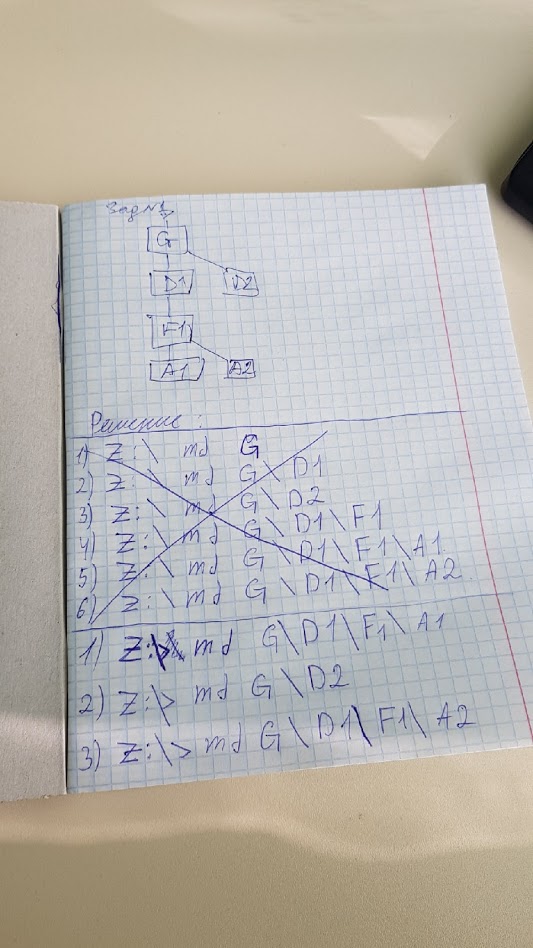 Зад №1
G
D1 D2
F1
A1 A2
Решение:
1) Z:\ md G
2) Z:\ md G\D1
3) Z:\ md G\D2
4) Z:\ md G\D1\F1
5) Z:\ md G\D1\F1\A1
6) Z:\ md G\D1\F1\A2
1) Z:\> md G\D1\F1\A1
2) Z:\> md G\D2
3) Z:\> md G\D1\F1\A2